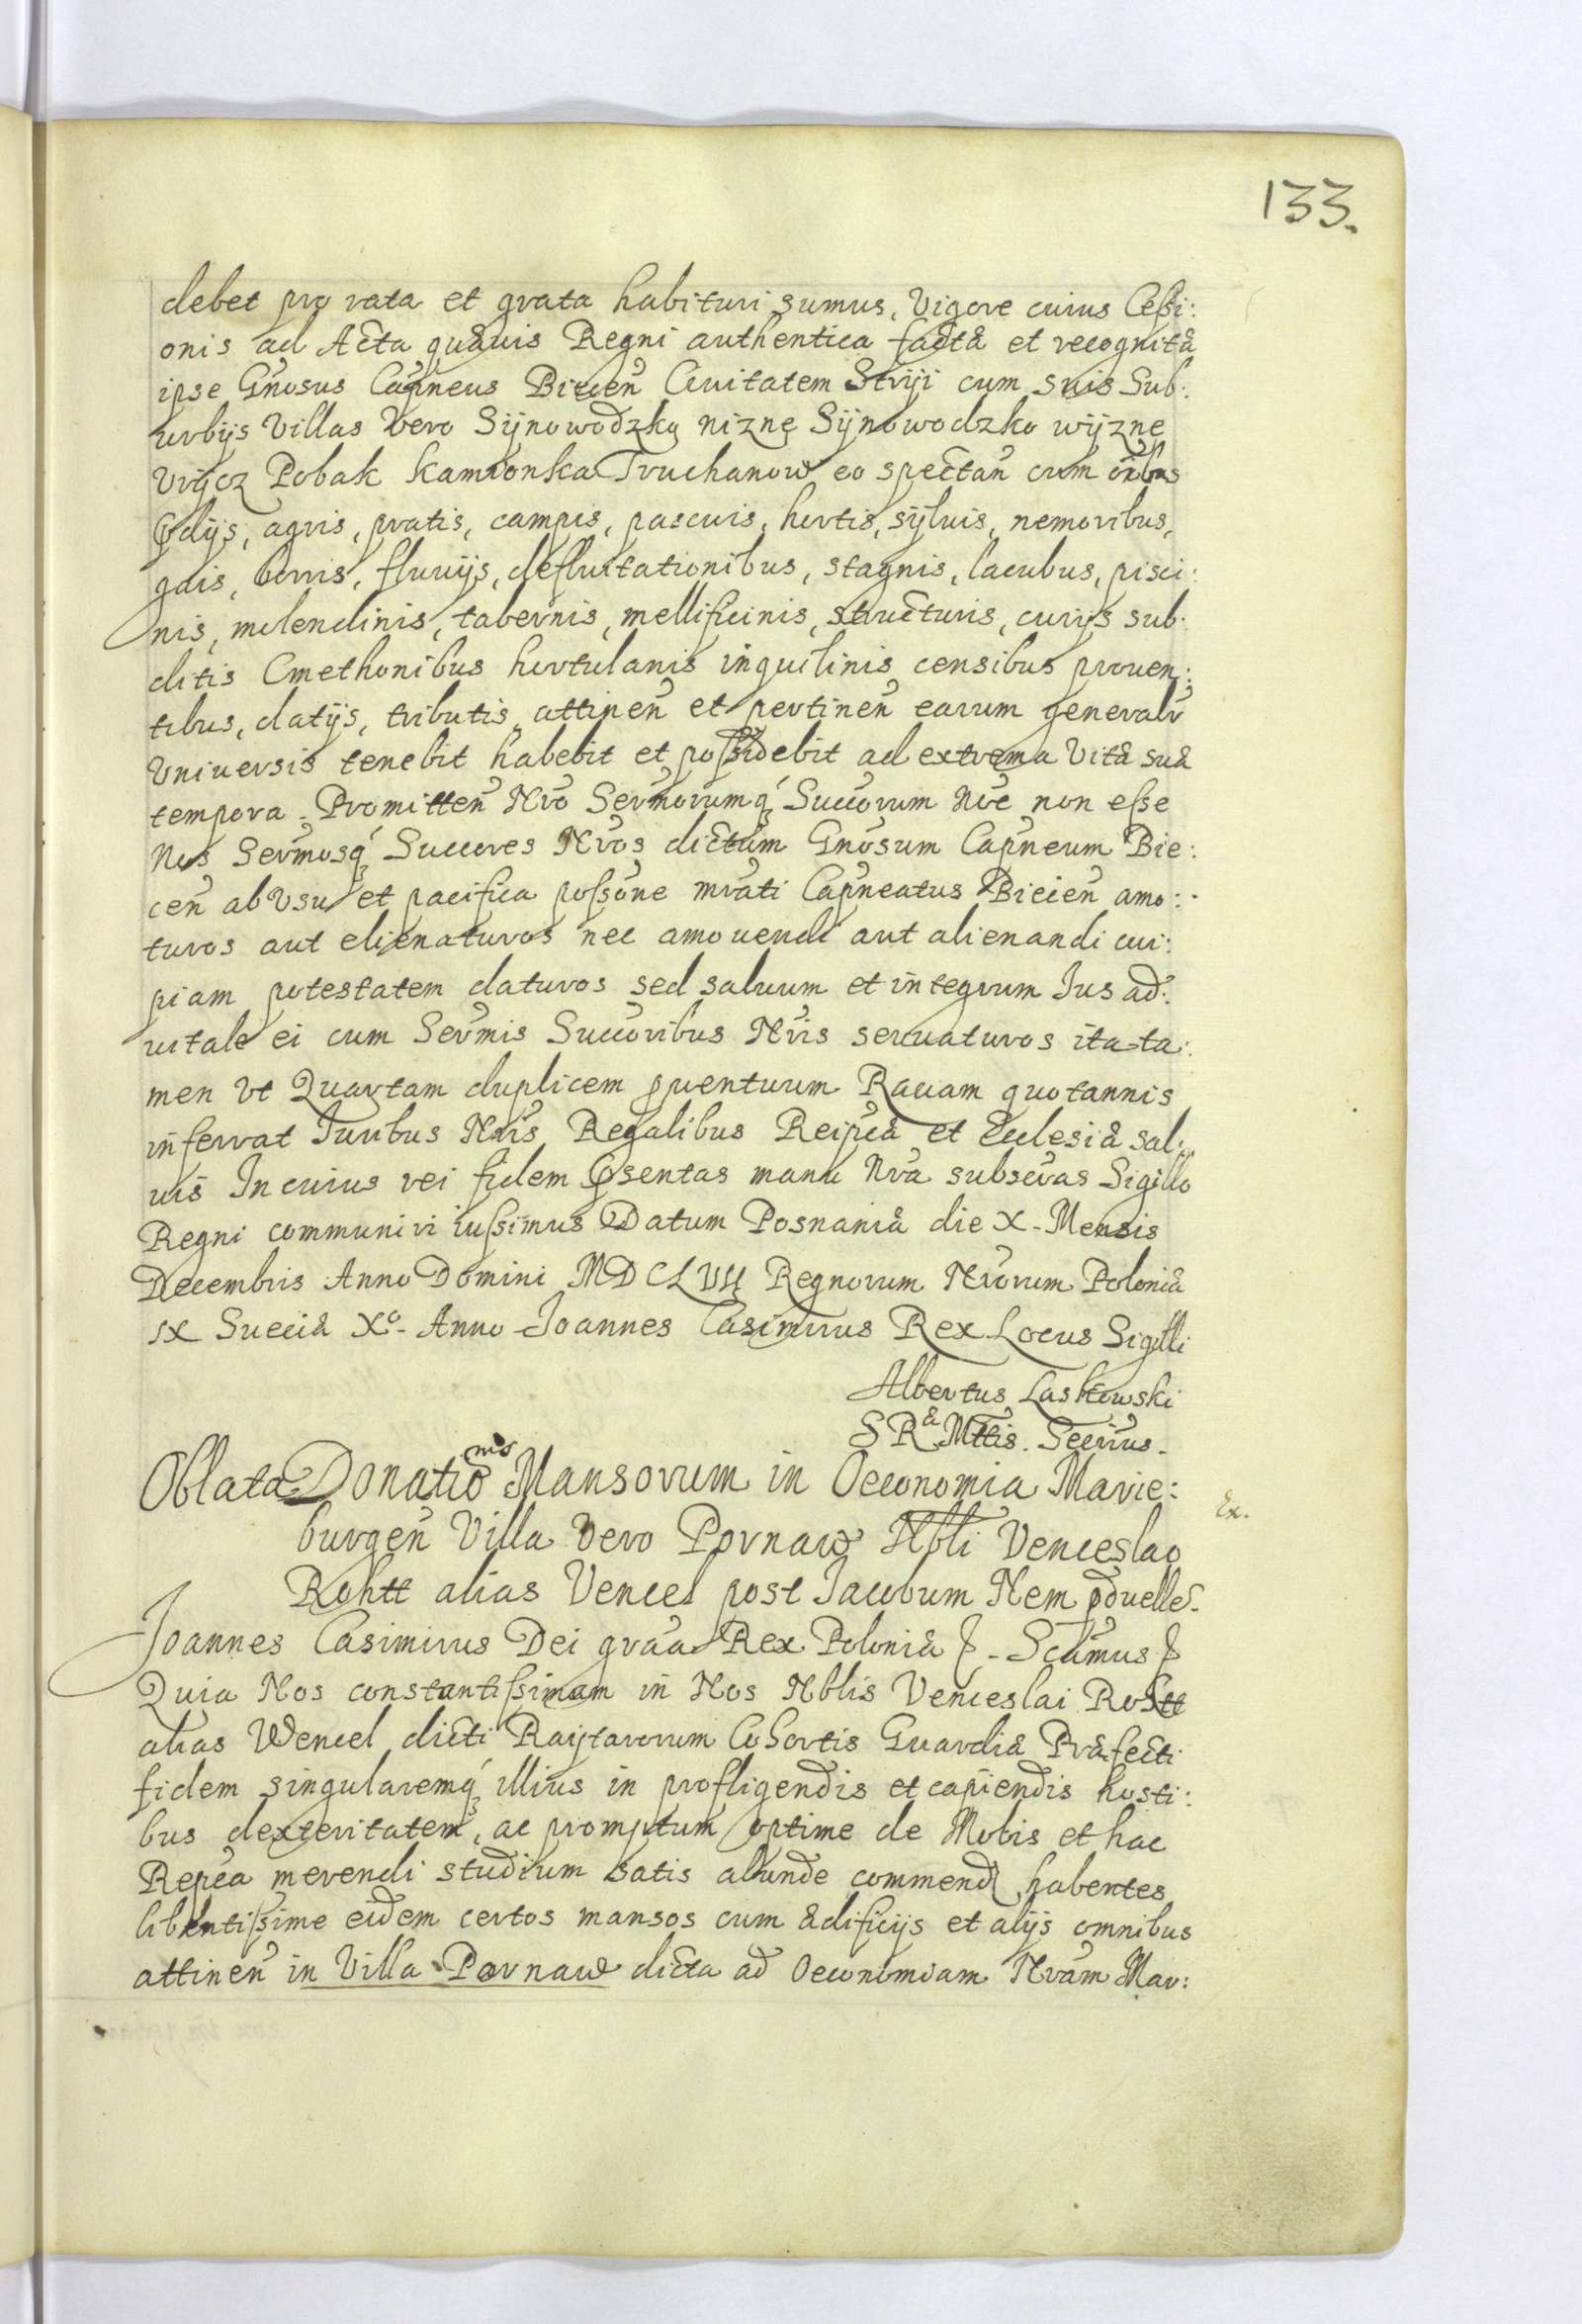 133.
debet pro rata et grata habituri sumus, Vigore cuius Cessi:
onis ad Acta quævis Regni authentica factæ et recognitæ
ipse Gnosus Capneus Biecen Civitatem Stryi cum suis Sub:
urbijs Villas Vero Sijnowodzko nizne Sijnowodzko wijzne
Vrijcz Pobak Kamionka Truchanow eo spectan cum oibus
pdijs, agris, pratis, campis, pascuis, hortis, sÿluis, nemoribus,
gais, borris, fluuijs, defluitationibus, stagnis, lacubus, pisci:
nis, molendinis, tabernis, mellificinis, structuris, curijs sub:
ditis Cmethonibus hortulanis inquilinis censibus prouen:
tibus, datijs, tributis attinen et pertinen earum generalr
Vniuersis tenebit habebit et possidebit ad extrema Vitæ suæ
tempora. Promitten Nro Sermorumq Succorum Noe non esse
Nos Sermosq Succores Nros dictum Gnosum Capneum Bie:
cen ab Vsu et pacifica possone mrati Capneatus Biecien amo:
turos aut elienaturos nec amouendi aut alienandi cui:
piam potestatem daturos sed saluum et integrum Ius ad:
uitale ei cum Sermis Succoribus Nris seruaturos ita ta:
men Vt Quartam duplicem puentuum Rauam quotannis
inferrat Iuribus Nris Regalibus Reipcæ et Ecclesiæ sal:
uis In cuius rei fidem psentas manu Nra subscras Sigillo
Regni communiri iussimus Datum Posnaniæ die X. Mensis
Decembris Anno Domini MDCLVII Regnorum Nrorum Poloniæ
IX Sueciæ Xo. Anno Joannes Casimirus Rex Locus Sigilli
Albertus Laskowski
S Ræ Mttis. Secrius.
Oblata Donationis Mansorum in Oeconomia Marie:
burgen Villa Vero Pornaw Nbli Venceslao
Rohtt alias Vencel post Iacobum Nem pduelle.
Ex.
Joannes Casimirus Dei graa Rex Poloniæ &. Scamus &
Quia Nos constantissimam in Nos Nblis Venceslai Rohtt
alias Wencel dicti Raÿtarorum Cohortis Guardiæ Præfecti
fidem singularemq illius in profligendis et capiendis hosti:
bus dexteritatem, ac promptum optime de Nobis et hac
Repca merendi studium satis abunde commend habentes
libentissime eidem certos mansos cum ædificijs et alijs omnibus
attinen in Villa Pornaw dicta ad Oeconomiam Nram Mar: